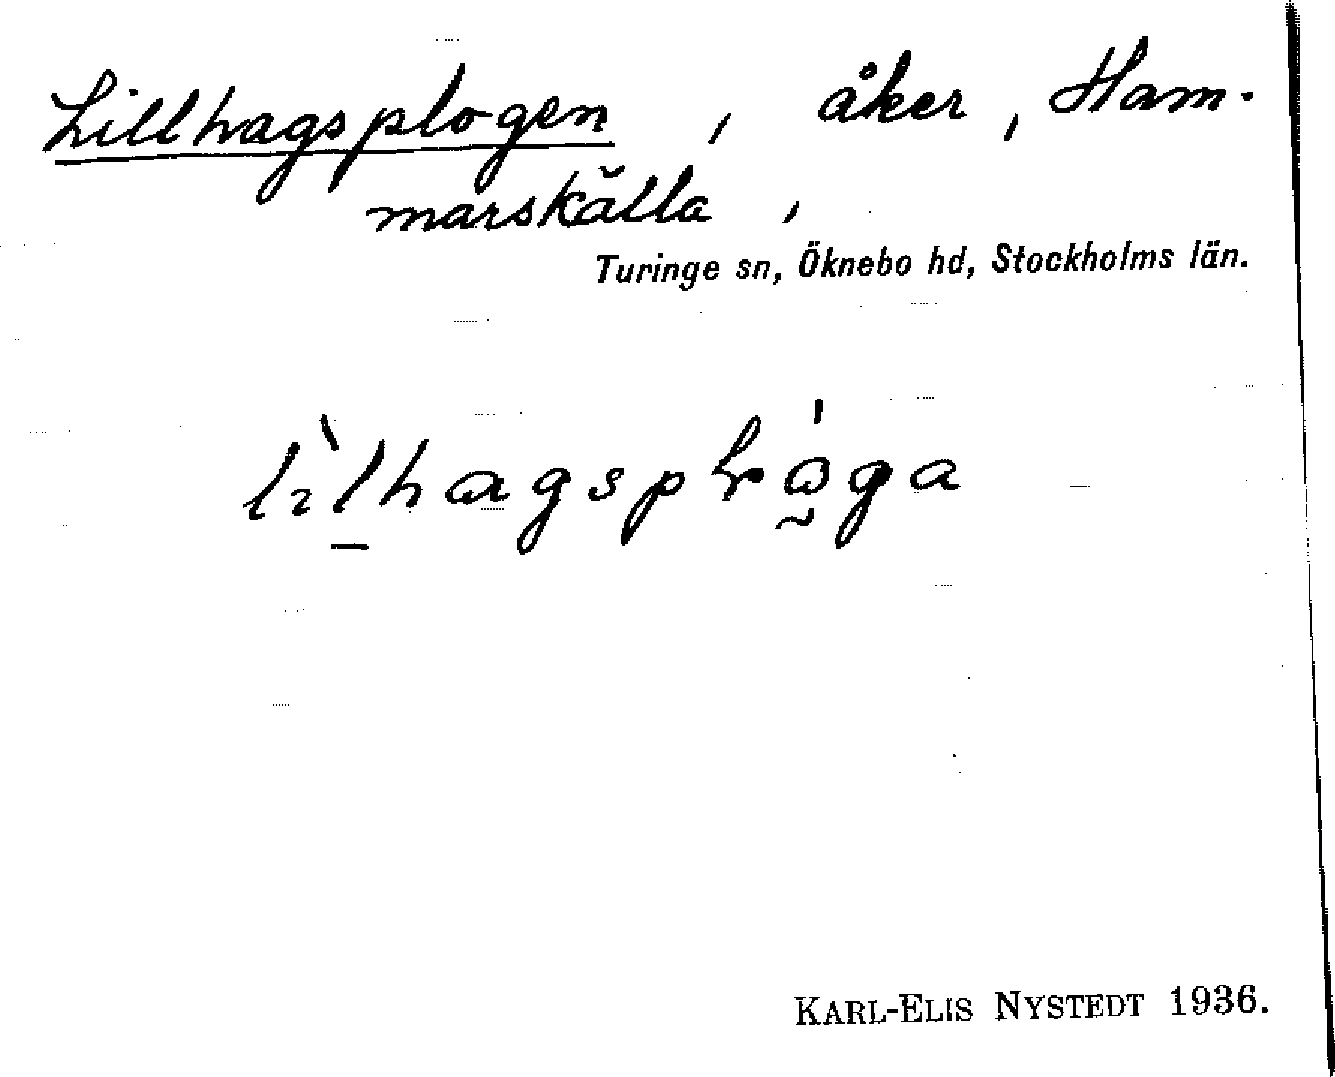 Lillhagsplogen, åker, Ham-
marskälla,
Turinge sn, Öknebo hd, Stockholms län.
KARL-ELIS NYSTEDT 1936.